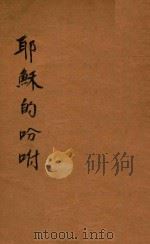 耶穌的吩咐
研狗
mtoou.info